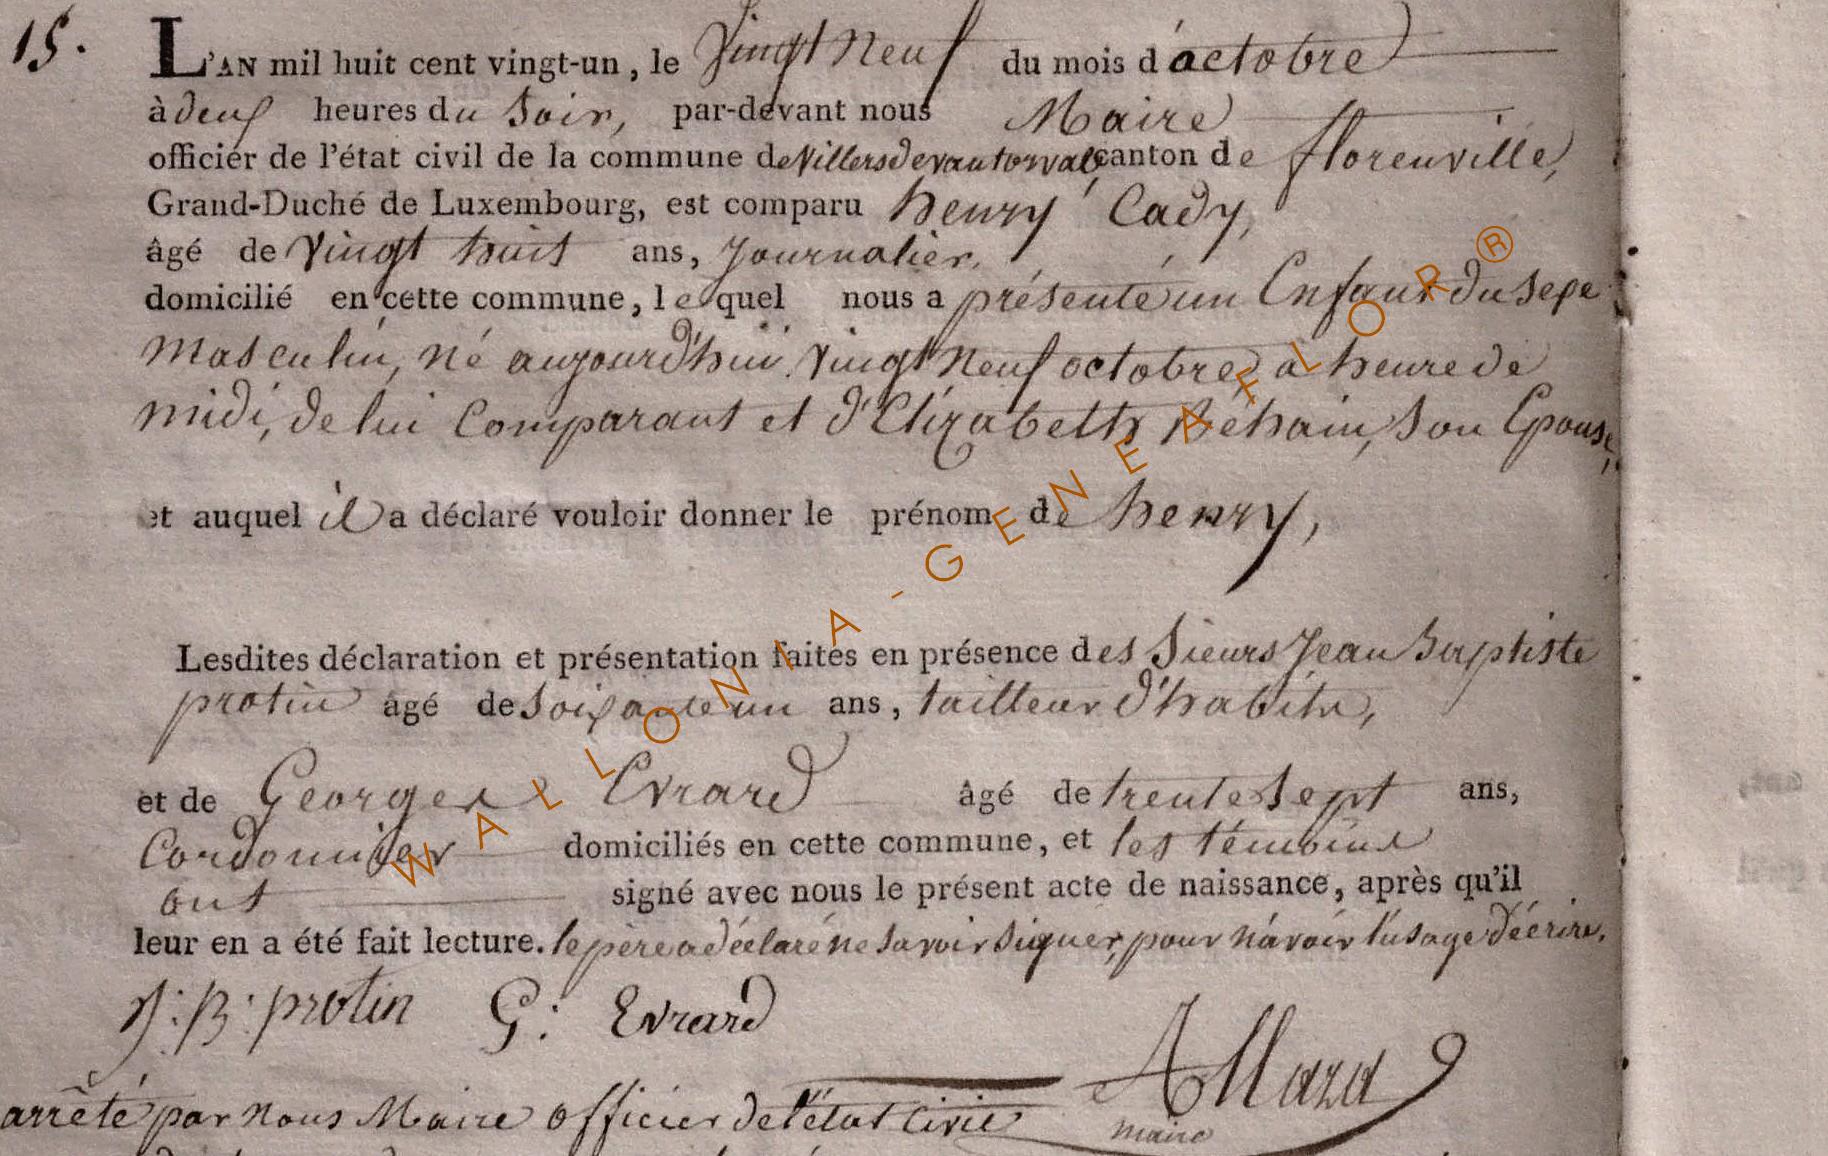 15.
L'AN mil huit cent vingt-un, le Vingt Neuf du mois d'octobre
à deux heures du Soir, par-devant nous Maire
officier de l'état civil de la commune de Villersdevantorval, canton de florenville,
Grand-Duché de Luxembourg, est comparu henry Cady,
âgé de Vingt huit ans, Journalier,
domicilié en cette commune, lequel nous a présenté un Enfant du sexe
masculin, né aujourd'hui vingt Neuf octobre, à heure de
midi, de lui Comparant et d'Elizabeth Béhain, son Epouse,
et auquel il a déclaré vouloir donner le prénom de henry,
Lesdites déclaration et présentation faites en présence des Sieurs Jean Baptiste
protin âgé de soixante un ans, tailleur d'habits,
et de Georges Evrard âgé de trente Sept ans,
Cordonnier domiciliés en cette commune, et les témoins
ont signé avec nous le présent acte de naissance, après qu'il
leur en a été fait lecture. le père a déclaré ne savoir signer, pour n'avoir l'usage d'écrire.
J: B: protin G: Evrard
Mara
arrêté par nous Maire officier de l'état civil
maire
WALLONIA-GENEAFLOR®